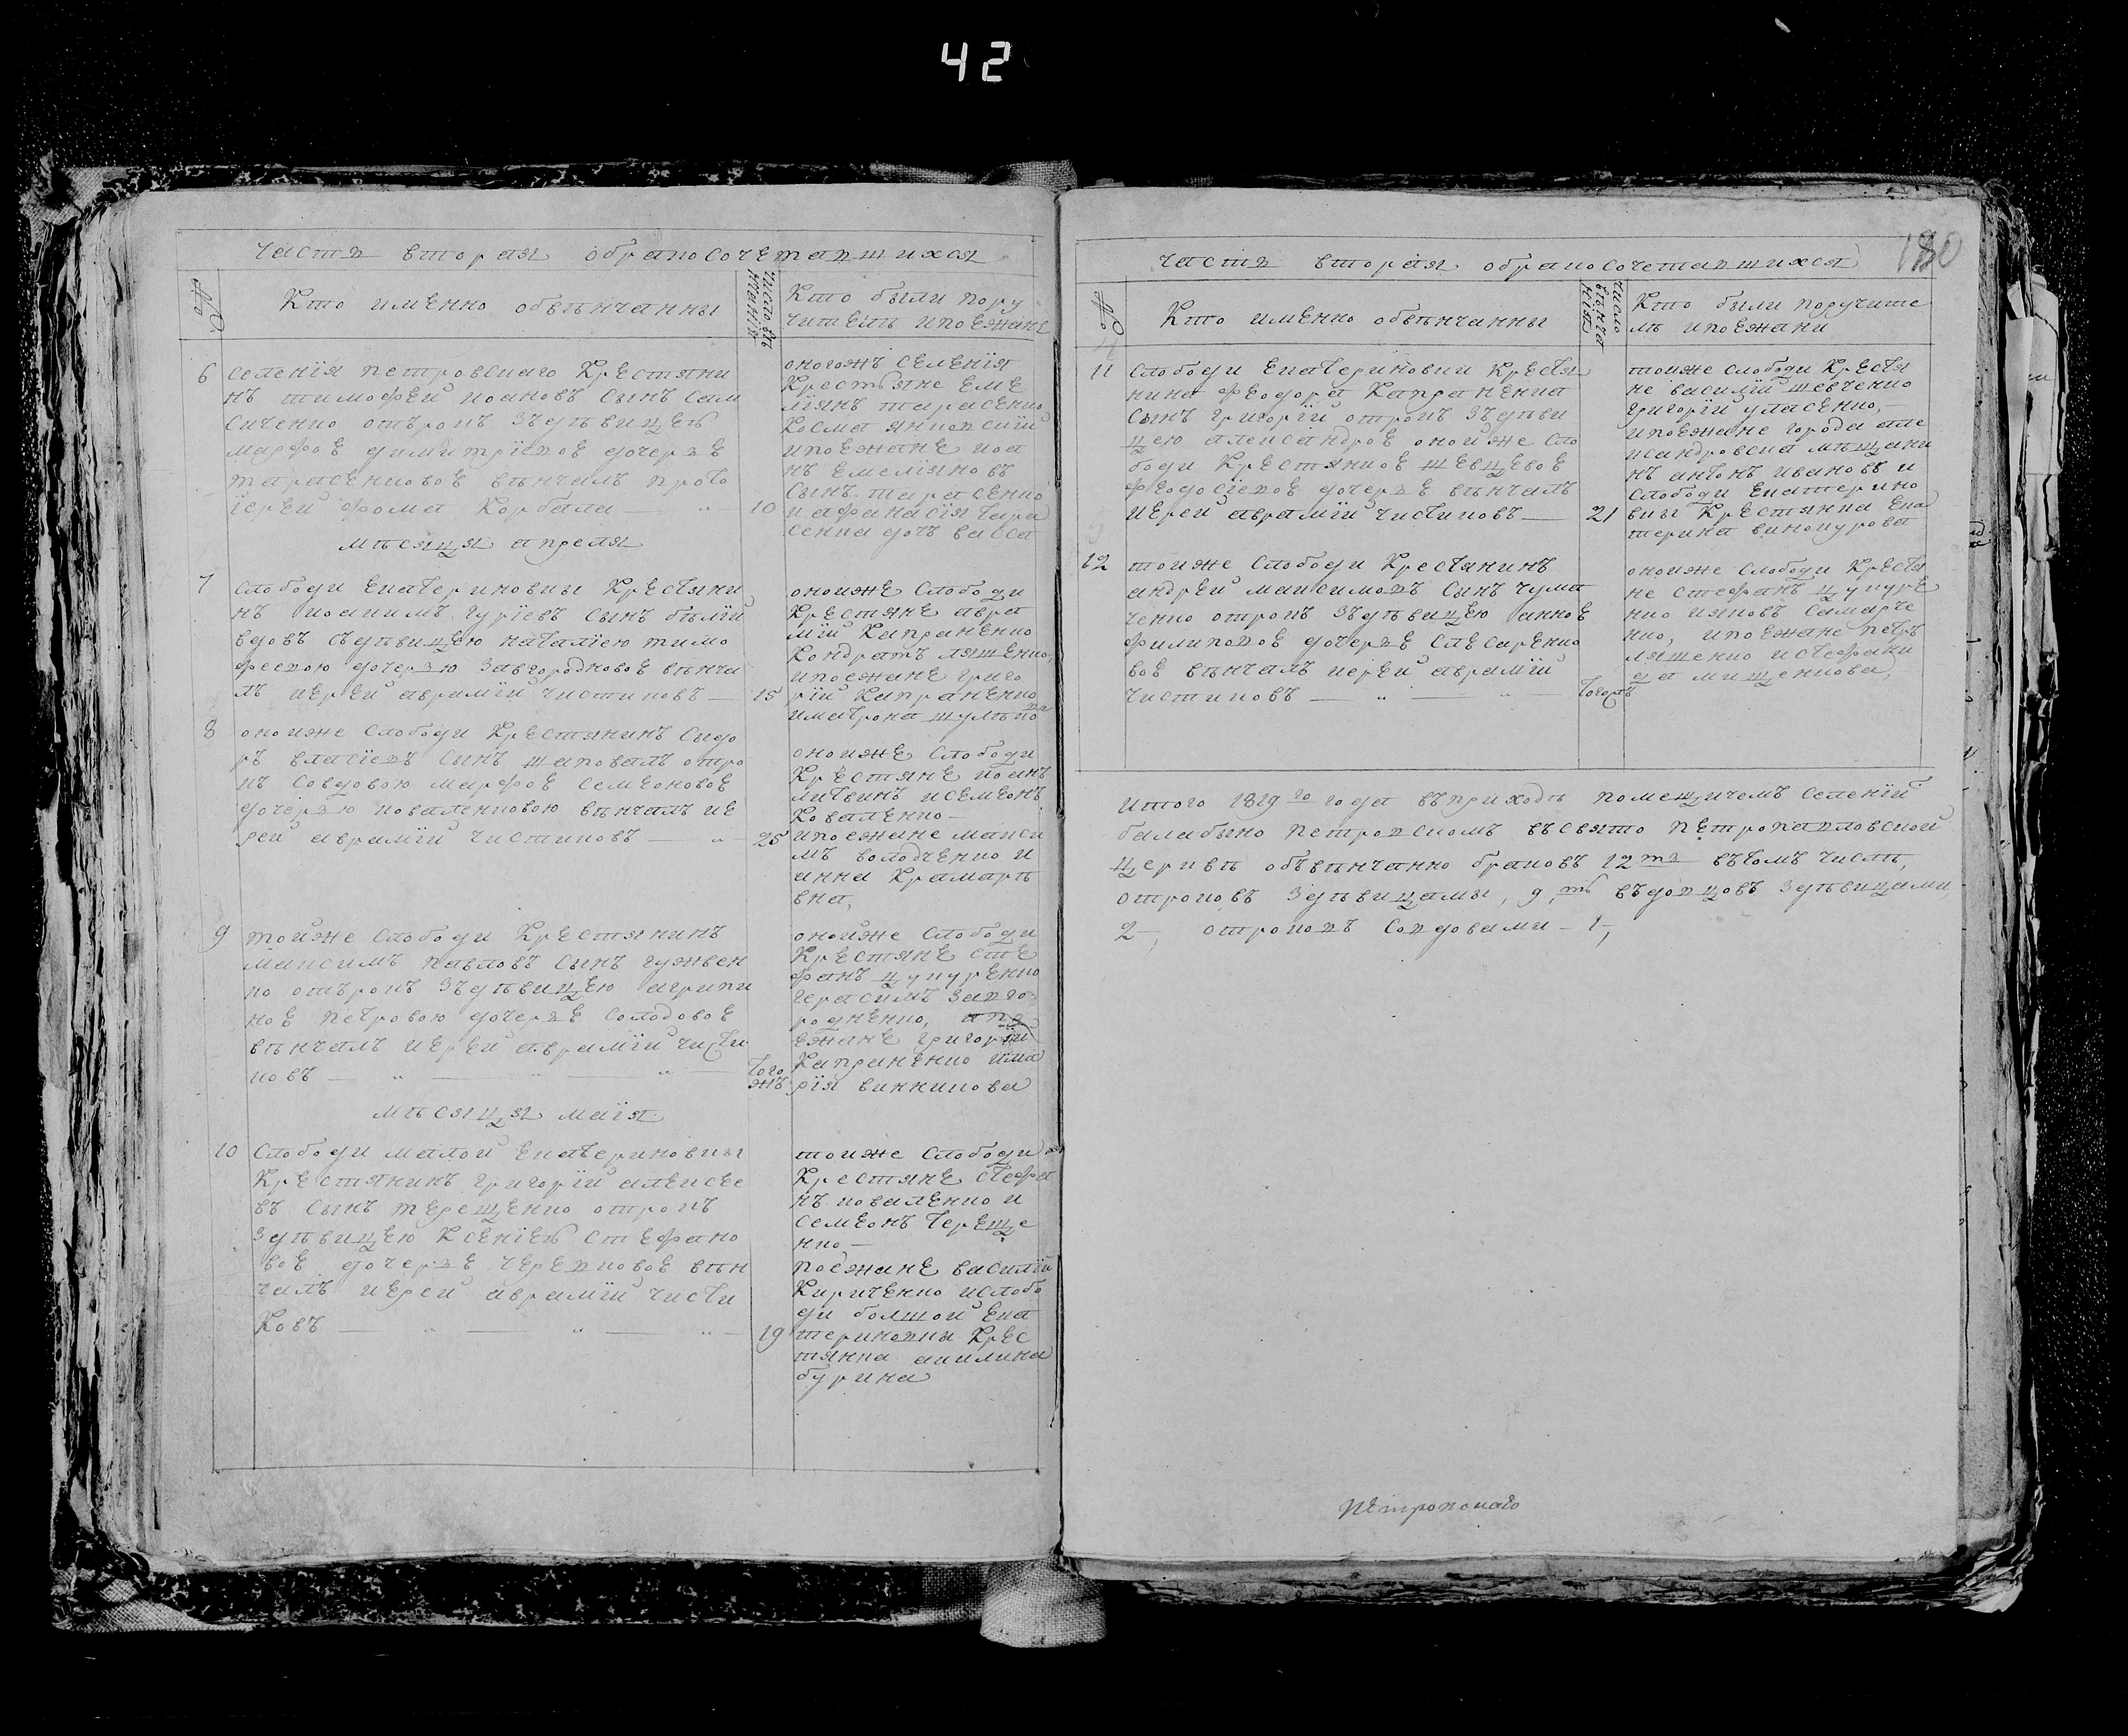 42
часть вторая обраносочетавшихся
№
Кто именно обвѣнчанны
число вѣнчанія
Кто были пору
чители ипоезжанѣ
6
селенія петровскаго Крестяни
нъ тимофей иоановъ сынъ сам
сиченко отърокъ зъдѣвицею
марфое димитріевое дочерве
тарасенковое вѣнчалъ прото
іерей фома Корбала
10
оногожъ селенія
Крестьяне Еме
ліянъ тарасенко
Косма
ипоезжане иоа
нъ Емеліяновъ
сынъ тарасенко
иафанасія тара
сенка дочъ васса
мѣсяця апреля
7
слободи Екатериновки Крестяни
нъ иоакимъ гуріевъ сынъ бѣлій
вдовъ съдѣвицею наталіею тимо
феевою дочервю завгородновое вѣнча
лъ иерей аврамій чистиковъ
15
оноиже слободи
Крестяне авра
мій Капраненко
Кондратъ ляшенко
ипоезжане григо
рій Капраненко
иматрона шулѣко
8
оноиже слободи Крестянинъ сидо
ръ власіевъ сынъ шаповалъ отро
къ совдовою марфое семеоновое
дочервю коваленковою вѣнчалъ ие
рей аврамій чистиковъ
25
оноиже слободи
Крестяне иоанъ
литвинъ исемеонъ
Коваленко
ипоезжане макси
мъ володченко и
анна Крамарѣ
вна,
9
тоиже слободи Крестянинъ
максимъ павловъ сынъ гужвен
ко отърокъ зъдѣвицею агрипи
ное петровою дочерве солодовое
вѣнчалъ иерей аврамій чисти
ковъ
того
жъ
оноиже слободи
Крестяне сте
фанъ цупуренко
герасимъ завго
родненко,
езжане григорій
Капраненко има
рія винникова
мѣсяця маія
10
слободи малой Екатериновки
Крестянинъ григорій алексее
въ сынъ терещенко отрокъ
здѣвицею Ксеніею стефано
вое дочерве черевковое вѣн
чалъ иерей аврамій чисти
Ковъ
19
тоиже слободи
Крестяне стефа
нъ коваленко и
семеонъ тереще
нко
поезжане василій
Кириченкоислобо
ди болшой Ека
териновки Крес
тянка акилина
бурина
180
часть вторая обраносочетавшихся
№
Кто именно обвѣнчанны
число вѣнчанія
Кто были поручите
лѣ ипоезжани
11
слободи Екатериновки Крестя
нина феодора Капраненка
сынъ григорій отрокъ зъдѣви
цею александрое оноиже сло
боди Крестянкое шевцевое
феодосіевое дочерве вѣнчалъ
иерей аврамій чистиковъ
21
тоиже слободи Крестя
не василій шевченко
григорій уласенко,
ипоезжане города але
ксандровска мѣщани
нъ антонъ ивановъ и
слободи Екатерино
вки Крестянка Ека
терина винокурова
12
тоиже слободи Крестянинъ
андрей максимовъ сынъ чума
ченко отрокъ зъдѣвицею анное
филиповое дочерве слесаренко
вое вѣнчалъ иерей аврамій
чистиковъ
тогожъ
оноиже слободи Крестя
не стефанъ цупуре
нко ияковъ самарче
нко, ипоезжане петръ
ляшенко истефани
да мищенкова,
итого 1819го года въприходѣ помещичемъ селеній
балабыно петровскомъ въсвято петропавловской
церквѣ объвѣнчанно браковъ 12ть вътомъ числѣ,
отроковъ здѣвицамы, 9,ть въдовцовъ здѣвицами,
2–, отроковъ совдовами – 1,
Петровскаго